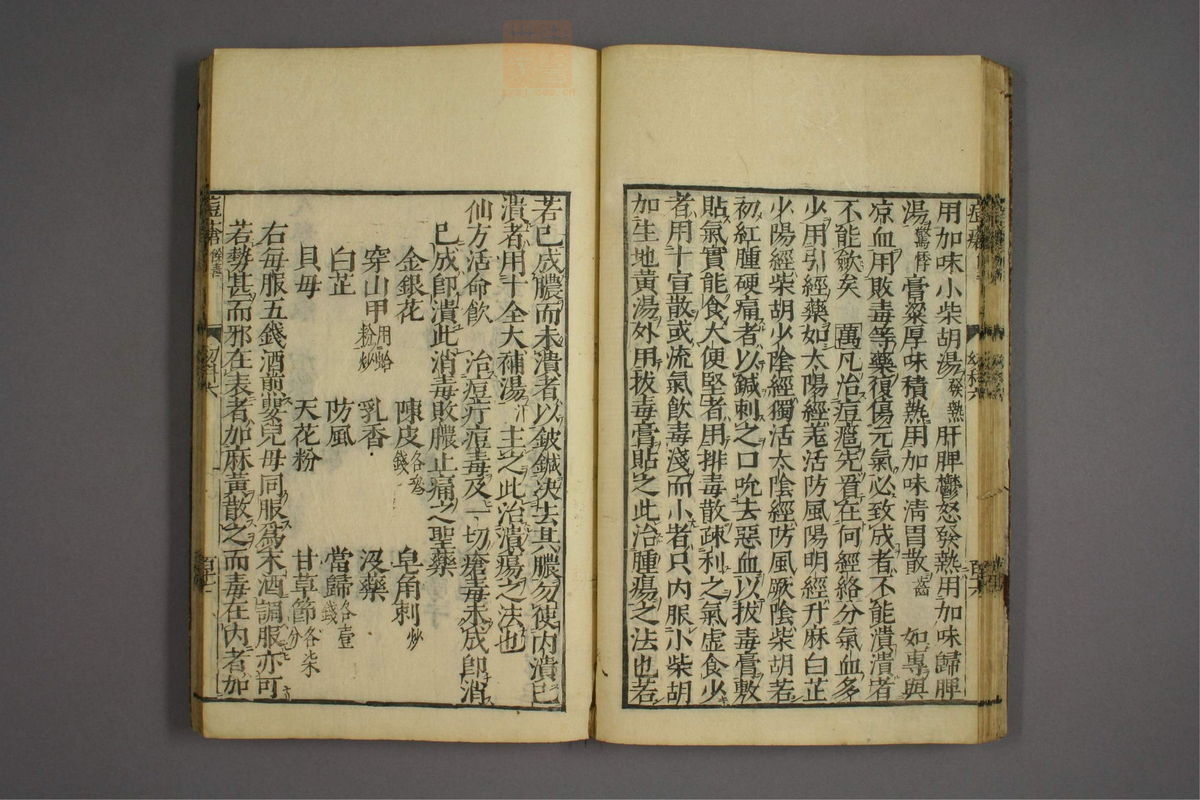 用加味小柴胡湯發熱肝脾鬱怒發熱用加味歸脾
湯驚悸膏粱厚味積熱用加味清胃散齒如專與
凉血用敗毒等藥復傷元氣必致成者不能潰潰者
不能斂矣萬凡治痘癰先看在何經絡分氣血多
少用引經藥如太陽經羌活防風陽明經升麻白芷
少陽經柴胡少陰經獨活太陰經防風厥陰柴胡若
初紅腫硬痛者以鍼刺之口吮去惡血以拔毒膏敷
貼氣實能食大便堅者用排毒散疎利之氣虛食少
者用十宣散或流氣飲毒淺而小者只内服小柴胡
加生地黃湯外用拔毒膏貼之此治腫瘍之法也若
若已成膿而未潰者以鈹鍼决去其膿勿使内潰已
潰者用十全大補湯汗主之此治潰瘍之法也
仙方活命飲 治痘疔痘毒及一切瘡毒未成卽消
已成卽潰此消毒敗膿止痛之聖藥
金銀花 陳皮各叁錢 皂角刺炒
穿山甲用蛤粉炒 乳香 沒藥
白芷 防風 當歸各壹錢
貝母 天花粉 甘草節各柒分
右每服五錢酒煎嬰兒母同服爲末酒調服亦可
若勢甚而邪在表者加麻黃散之而毒在内者加
痘瘡
幼科六